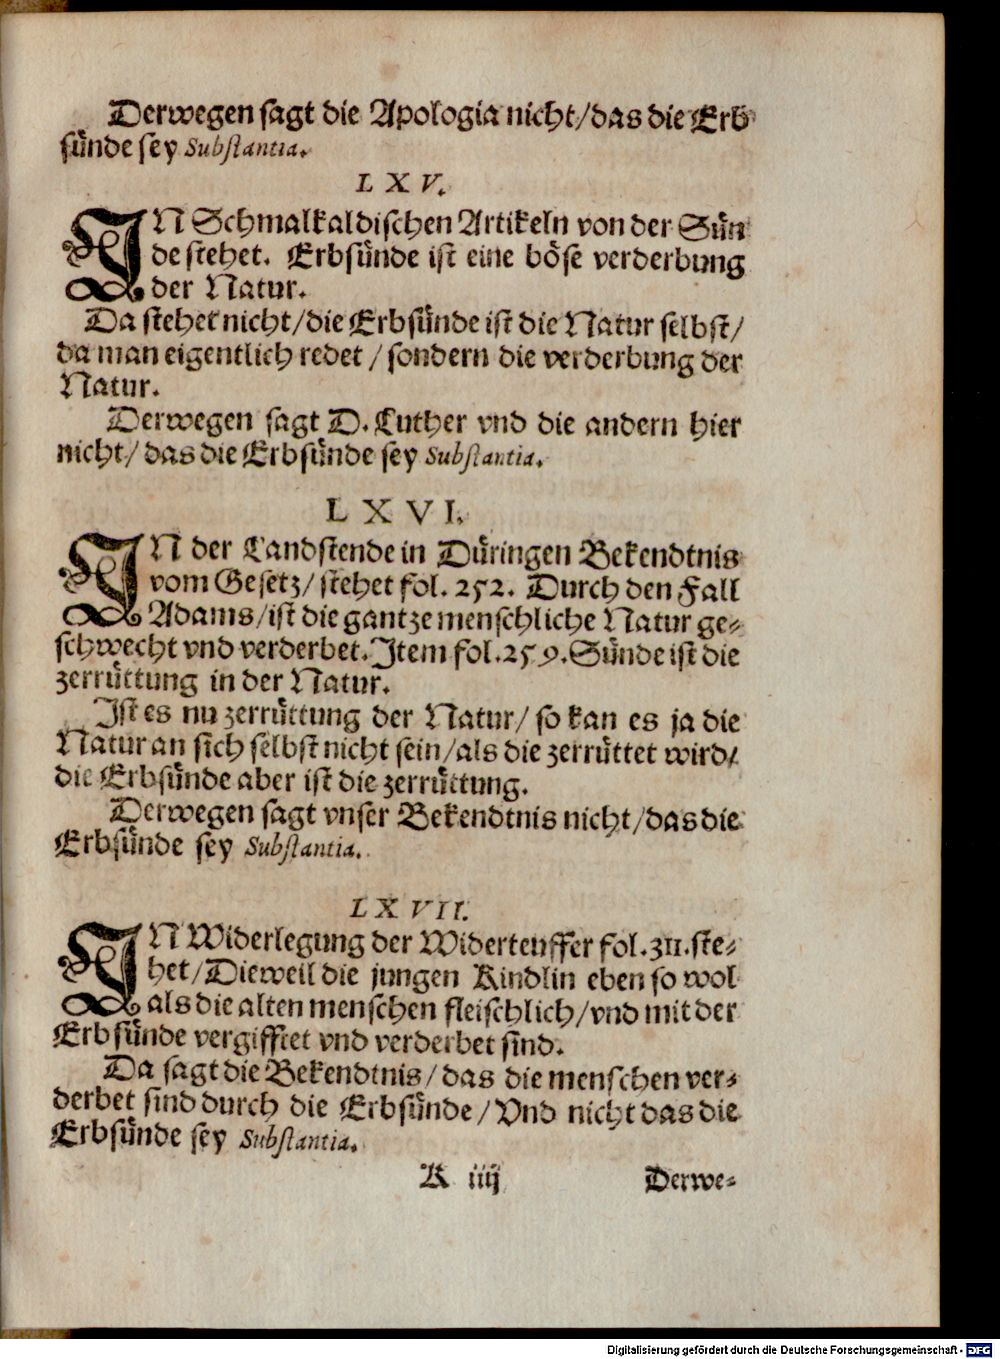 Derwegen sagt die Apologia nicht/das die Erb
sünde sey Substantia.
LXV.
IN Schmalkaldischen Artikeln von der Sün
de stehet. Erbsünde ist eine böse verderbung
der Natur.
Da stehet nicht/die Erbsünde ist die Natur selbst/
da man eigentlich redet / sondern die verderbung der
Natur.
Derwegen sagt D. Luther vnd die andern hier
nicht/ das die Erbsünde sey Substantia.
LXVI.
IN der Landstende in Düringen Bekendtnis
vom Gesetz/ stehet fol. 252. Durch den Fall
Adams/ist die gantze menschliche Natur ge-
schwecht vnd verderbet. Item fol. 259. Sünde ist die
zerrüttung in der Natur.
Ist es nu zerrüttung der Natur/ so kan es ja die
Natur an sich selbst nicht sein/als die zerrüttet wird/
die Erbsünde aber ist die zerrüttung.
Derwegen sagt vnser Bekendtnis nicht/das die
Erbsünde sey Substantia.
LXVII.
IN Widerlegung der Widerteuffer fol. 311. ste-
het/Dieweil die jungen Kindlin eben so wol
als die alten menschen fleischlich/vnd mit der
Erbsünde vergifftet vnd verderbet sind.
Da sagt die Bekendtnis/das die menschen ver-
derbet sind durch die Erbsünde/Vnd nicht das die
Erbsünde sey Substantia.
K iiij
Derwe-
Digitalisierung gefördert durch die Deutsche Forschungsgemeinschaft - DFG